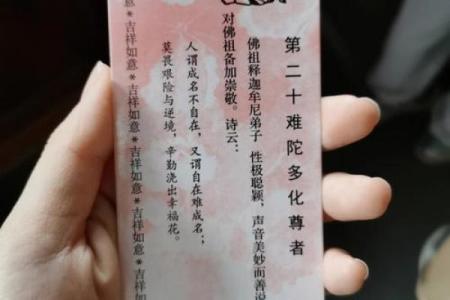 第二十难陀多化尊者
佛祖释迦牟尼弟子 性极聪颖,声音美妙而善说
对佛祖备加崇敬。诗云…
人谓成名不自在,又谓自在难成名;
莫畏艰险与逆境,辛勤浇出幸福花。
*吉祥如意*吉祥如意*吉祥如意*吉祥如意*吉祥如意